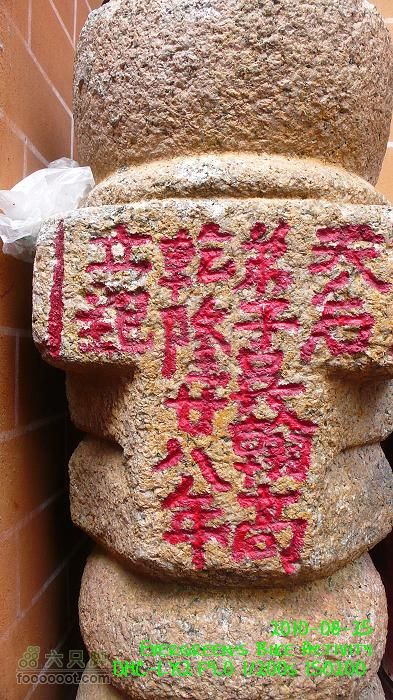 天后
弟子吳翰高
乾隆廿八年
立記
2010-08-25
Evergreen's Bike Activity
DMC-LX2 F9.0 1/200s ISO100
六只脚
foooooot.com